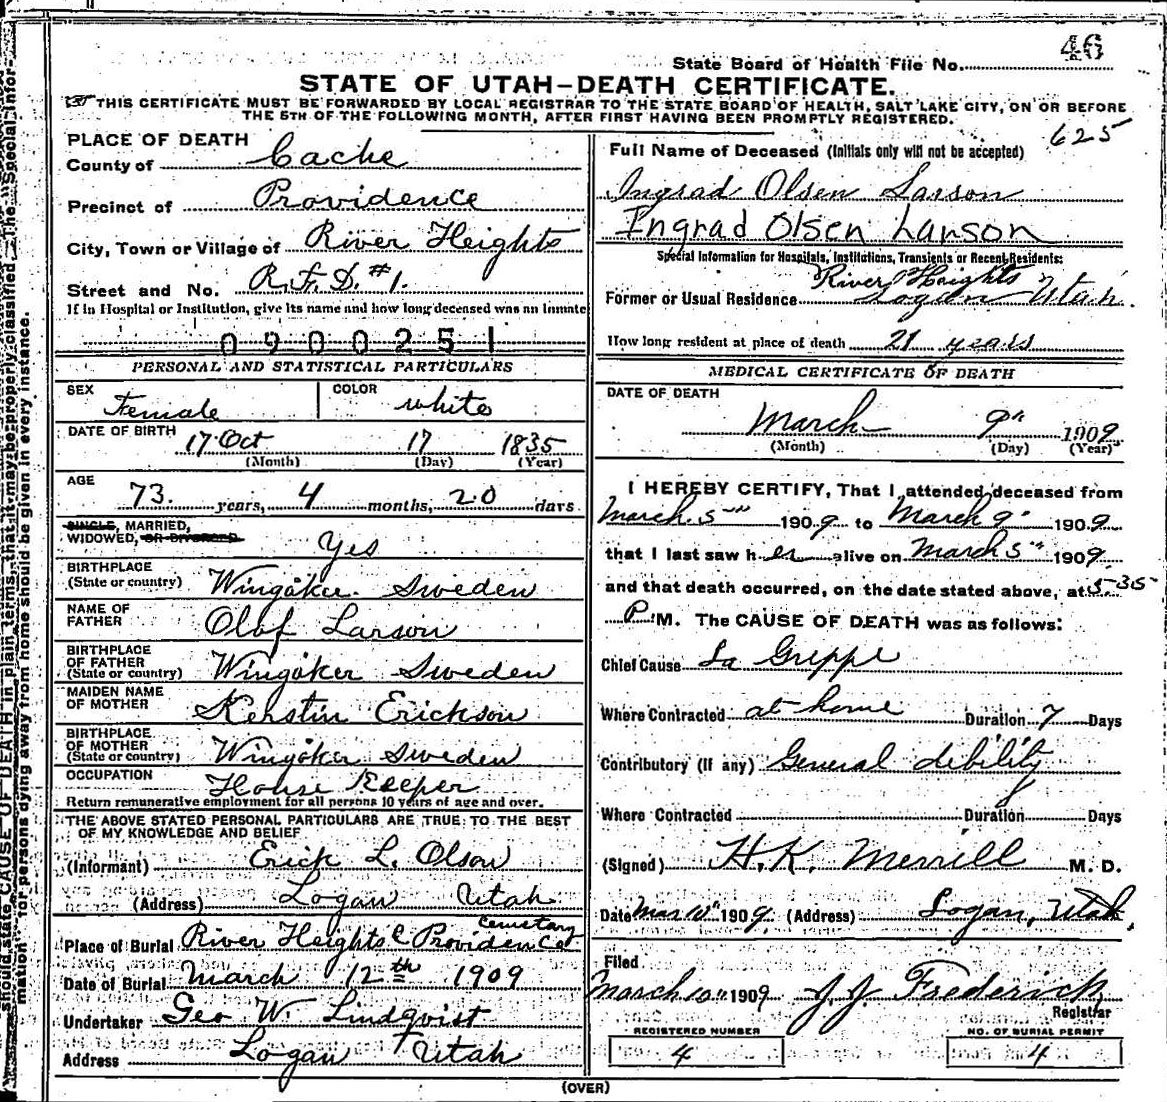 46
State Board of Health File No.
STATE OF UTAH—DEATH CERTIFICATE.
THIS CERTIFICATE MUST BE FORWARDED BY LOCAL REGISTRAR TO THE STATE BOARD OF HEALTH, SALT LAKE CITY, ON OR BEFORE
THE 5TH OF THE FOLLOWING MONTH, AFTER FIRST HAVING BEEN PROMPTLY REGISTERED.
PLACE OF DEATH
County of Cache
Precinct of Providence
City, Town or Village of River Heights
Street and No. R.F.D. #1.
If in Hospital or Institution, give its name and how long deceased was an inmate
0900251
PERSONAL AND STATISTICAL PARTICULARS
SEX Female COLOR white
DATE OF BIRTH 17 Oct 17 1835
(Month) (Day) (Year)
AGE 73. years, 4 months, 20 days
SINGLE, MARRIED,
WIDOWED, OR DIVORCED Yes
BIRTHPLACE
(State or country) Wingåker Sweden
NAME OF
FATHER Olof Larson
BIRTHPLACE
OF FATHER
(State or country) Wingåker Sweden
MAIDEN NAME
OF MOTHER Kerstin Erickson
BIRTHPLACE
OF MOTHER
(State or country) Wingåker Sweden
OCCUPATION House Keeper
Return remunerative employment for all persons 10 years of age and over.
THE ABOVE STATED PERSONAL PARTICULARS ARE TRUE TO THE BEST
OF MY KNOWLEDGE AND BELIEF
(Informant) Erick L. Olson
(Address) Logan Utah
Place of Burial River Heights & Providence Cemetary
Date of Burial March 12th 1909
Undertaker Geo W. Lindqvist
Address Logan Utah
625
Full Name of Deceased (Initials only will not be accepted)
Ingrad Olsen Larson
Ingrad Olsen Larson
Special Information for Hospitals, Institutions, Transients or Recent Residents:
River Heights
Former or Usual Residence Logan Utah.
How long resident at place of death 21 years
MEDICAL CERTIFICATE OF DEATH
DATE OF DEATH
March 9" 1909
(Month) (Day) (Year)
I HEREBY CERTIFY, That I attended deceased from
March 5" 1909 to March 9" 1909
that I last saw her alive on March 5" 1909
and that death occurred, on the date stated above, at 5-35
P. M. The CAUSE OF DEATH was as follows:
Chief Cause La Grippe
Where Contracted at home Duration 7 Days
Contributory (if any) General debility
Where Contracted Duration Days
(Signed) H.K. Merrill M. D.
Date Mar 10" 1909. (Address) Logan, Utah.
Filed
March 10" 1909 J J Frederick
Registrar
REGISTERED NUMBER
4
NO. OF BURIAL PERMIT
4
(OVER)
should state CAUSE OF DEATH in plain terms, that it may be properly classified. The "Special Infor-
mation" for persons dying away from home should be given in every instance.